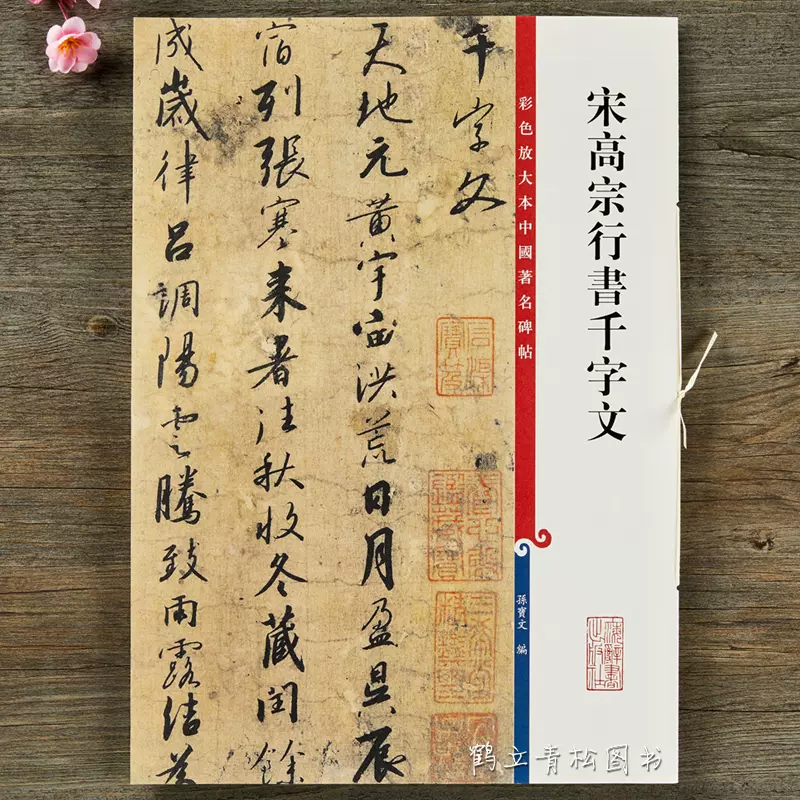 宋高宗行書千字文
上海辭書
出版社
彩色放大本中國著名碑帖
孫寶文 編
千字文
天地元黄宇宙洪荒日月盈昃辰
宿列張寒来暑往秋收冬藏閏餘
成歲律呂調陽雲騰致雨露結為
鹤立青松图书